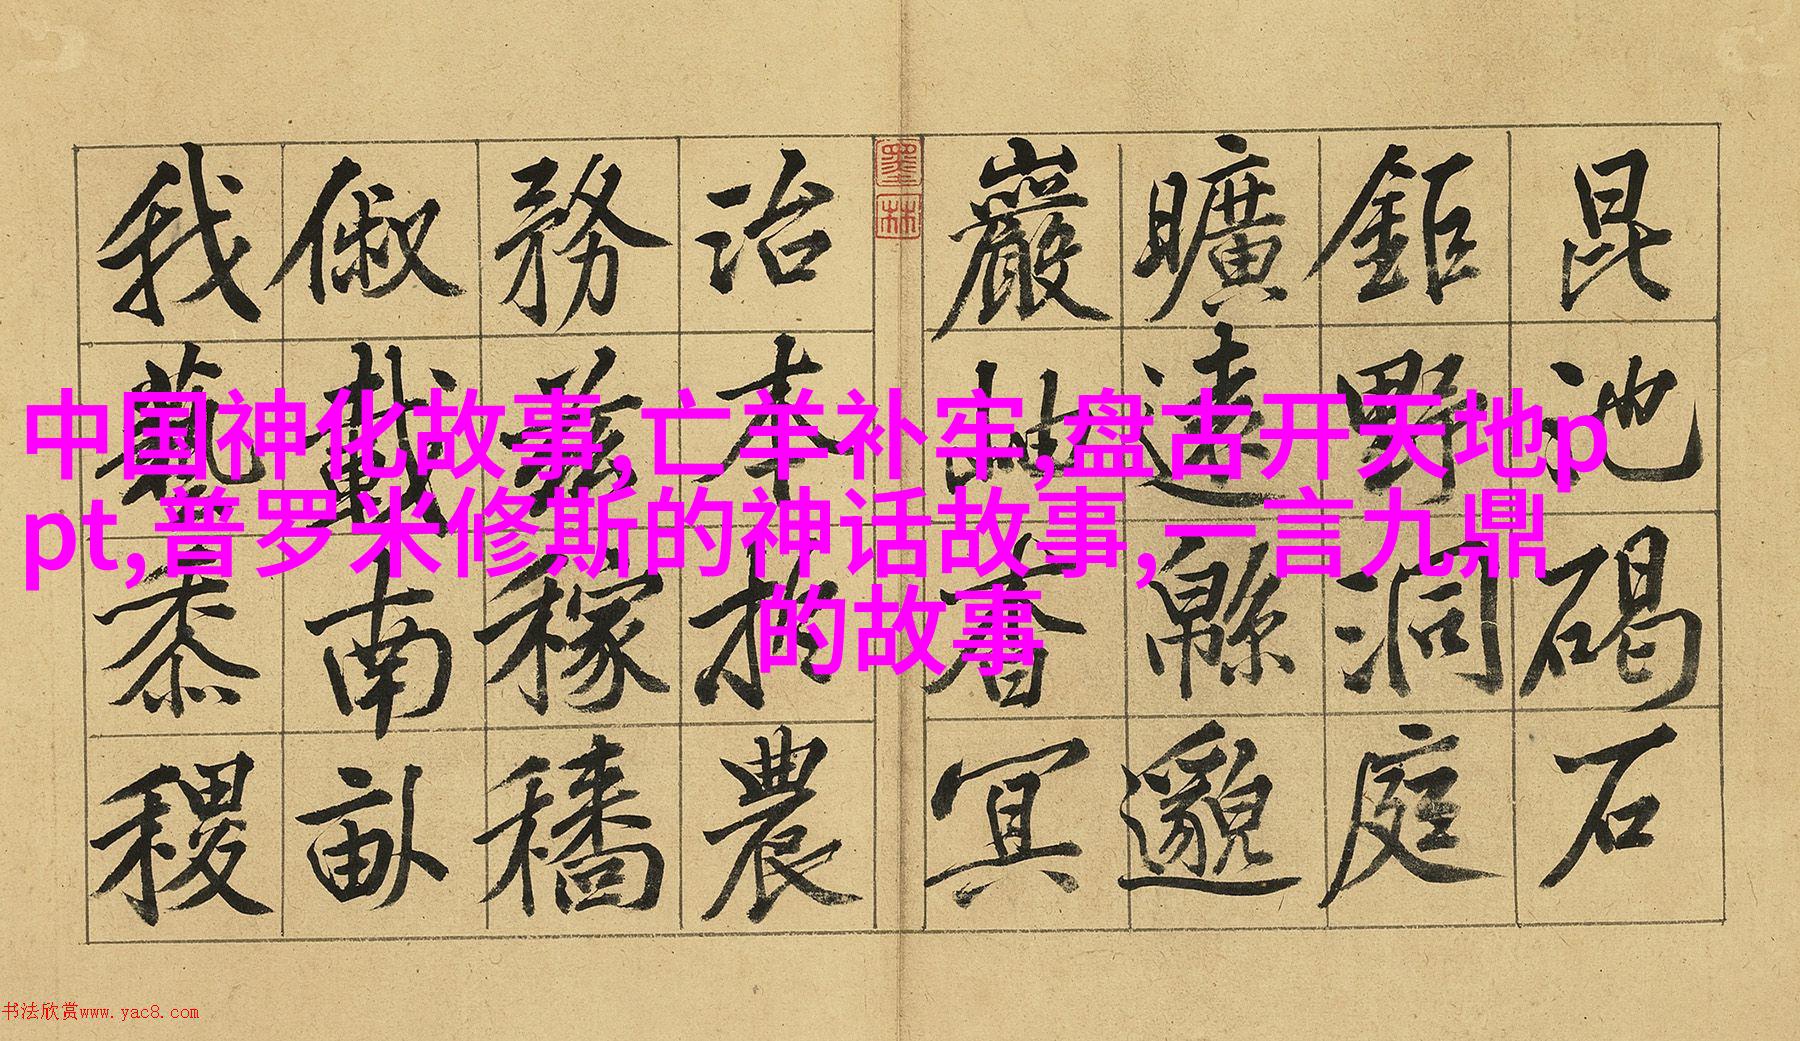 中国神化故事,亡羊补牢,盘古开天地p
pt,普罗米修斯的神话故事,一言九鼎
的故事
昆池碣石
鉅野洞庭
曠遠緜邈
巖岫杳冥
墨林
治本於農
務茲稼穡
俶載南畝
我藝黍稷
书法欣赏www.yac8.com